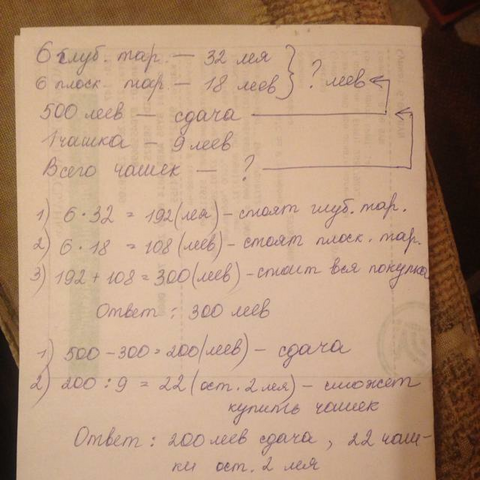 6 глуб. тар. — 32 лея
6 плоск. тар — 18 леев } ? леев
500 леев — сдача
1 чашка — 9 леев
Всего чашек — ?
1) 6 · 32 = 192 (лея) – стоят глуб. тар.
2) 6 · 18 = 108 (леев) – стоят плоск. тар.
3) 192 + 108 = 300 (леев) – стоит вся покупка
Ответ : 300 леев
1) 500 – 300 = 200 (леев) – сдача
2) 200 : 9 = 22 (ост. 2 лея) – сможет
купить чашек
Ответ : 200 леев сдача , 22 чаш-
ки ост. 2 лея